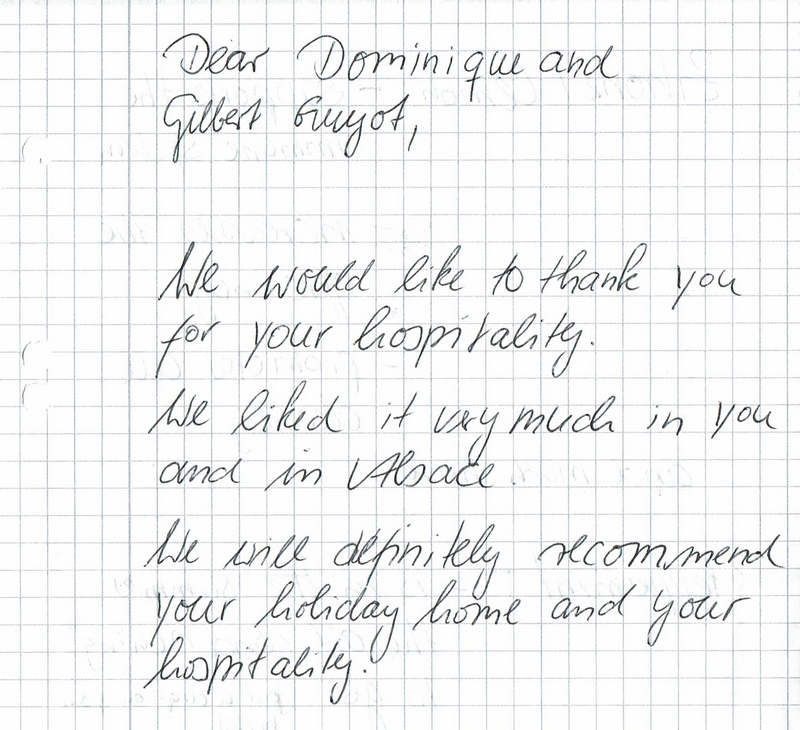 Dear Dominique and
Gilbert Guyot,
We would like to thank you
for your hospitality.
We liked it very much in you
and in Alsace.
We will definitely recommend
your holiday home and your
hospitality.